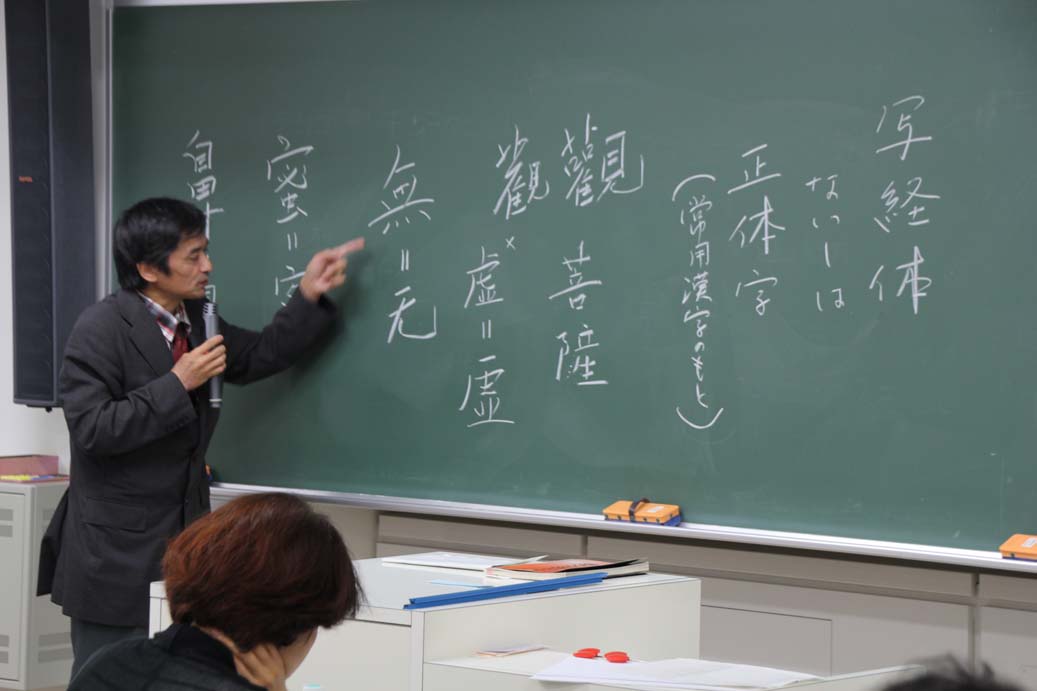 写経体
ないしは
正体字
(常用漢字のもと)
觀菩薩
觀
虚=虛
無=无
蜜=
鼻